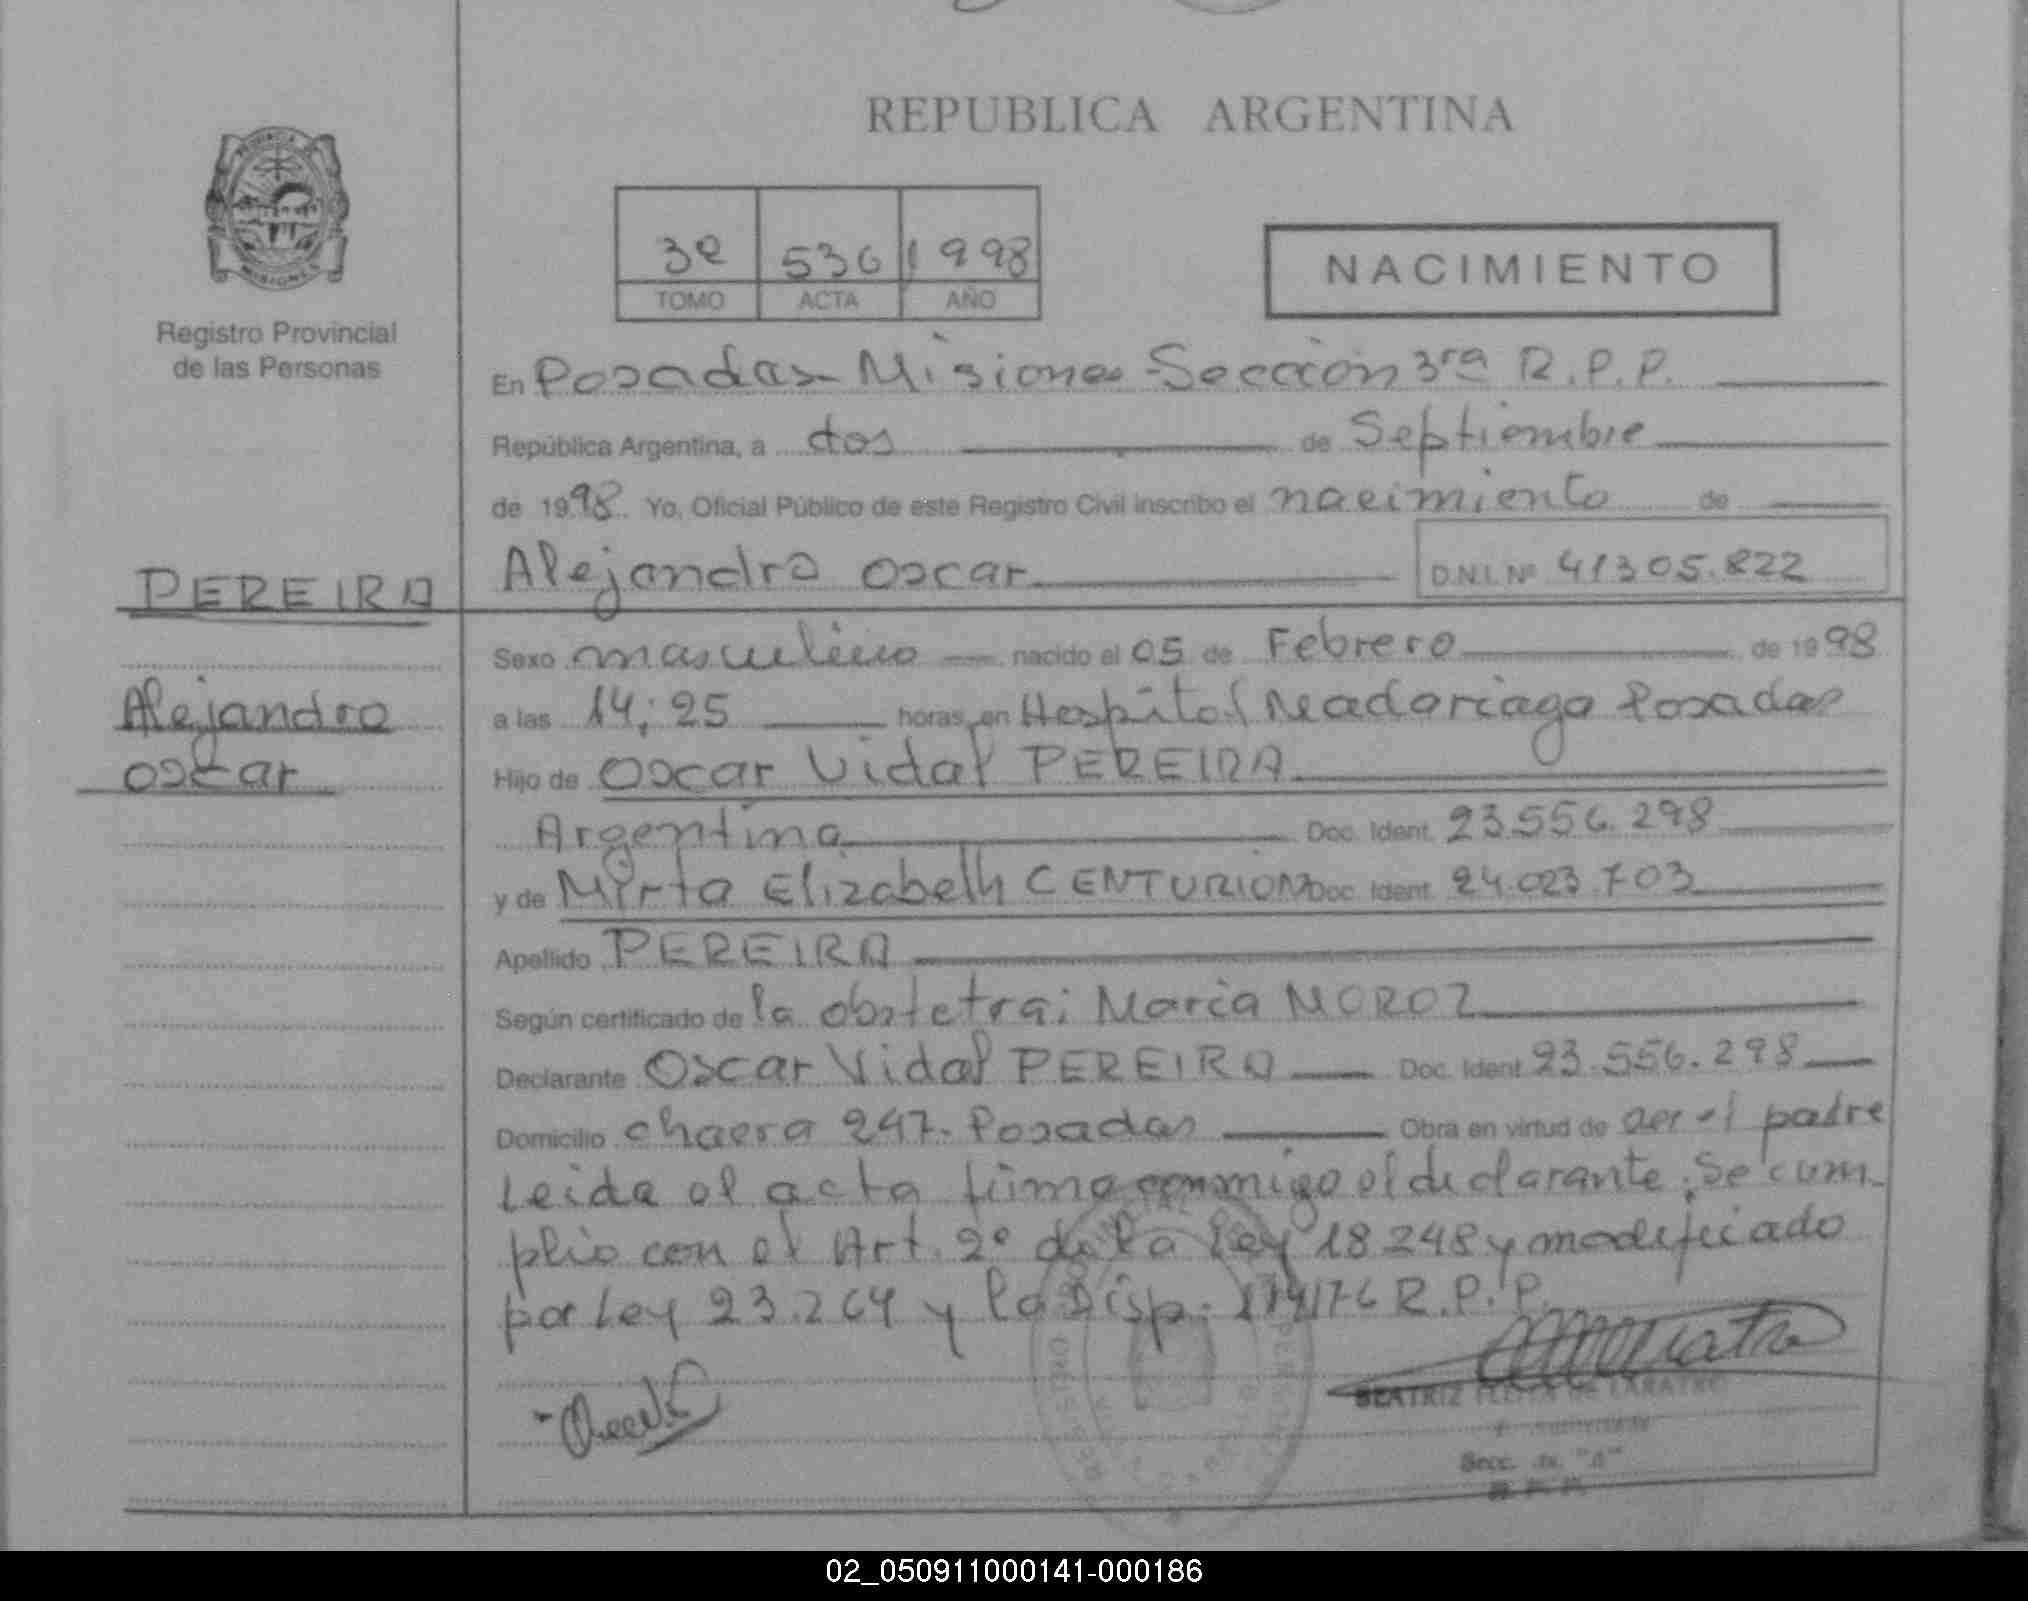 REPUBLICA ARGENTINA
3º 536 1998
TOMO ACTA AÑO
NACIMIENTO
Registro Provincial
de las Personas
En Posadas Misiones Sección 3ra R.P.P.
República Argentina, a dos de Septiembre
de 1998 Yo, Oficial Público de este Registro Civil inscribo el nacimiento de
Alejandro Oscar D.N.I. Nº 41305.822
PEREIRA
Alejandro
Oscar
Sexo masculino nacido el 05 de Febrero de 1998
a las 14:25 horas, en Hospital Madariaga Posadas
Hijo de Oscar Vidal PEREIRA
Argentina Doc. Ident. 23.556.298
y de Mirta Elizabeth CENTURION Doc. Ident. 24.023.703
Apellido PEREIRA
Según certificado de la obstetra: Maria MOROZ
Declarante Oscar Vidal PEREIRA Doc. Ident. 23.556.298
Domicilio chacra 247- Posadas Obra en virtud de ser el padre
Leida el acta firma conmigo el declarante. Se cum-
plio con el Art. 2º de la Ley 18248 y modificado
por Ley 23.264 y la Disp. R.P.P.
BEATRIZ
Secc.
02_050911000141-000186